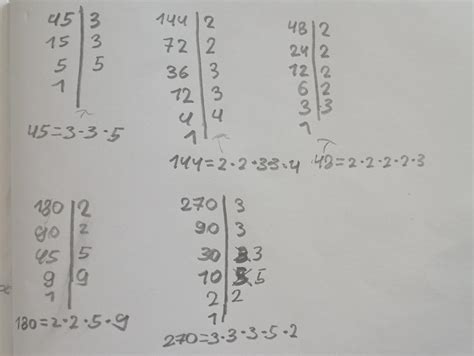 45 | 3
15 | 3
5 | 5
1
45=3·3·5
144 | 2
72 | 2
36 | 3
12 | 3
4 | 4
1
144=2·2·33·4
48 | 2
24 | 2
12 | 2
6 | 2
3 | 3
1
48=2·2·2·2·3
180 | 2
90 | 2
45 | 5
9 | 9
1
180=2·2·5·9
270 | 3
90 | 3
30 | 3
10 | 5
2 | 2
1
270=3·3·3·5·2